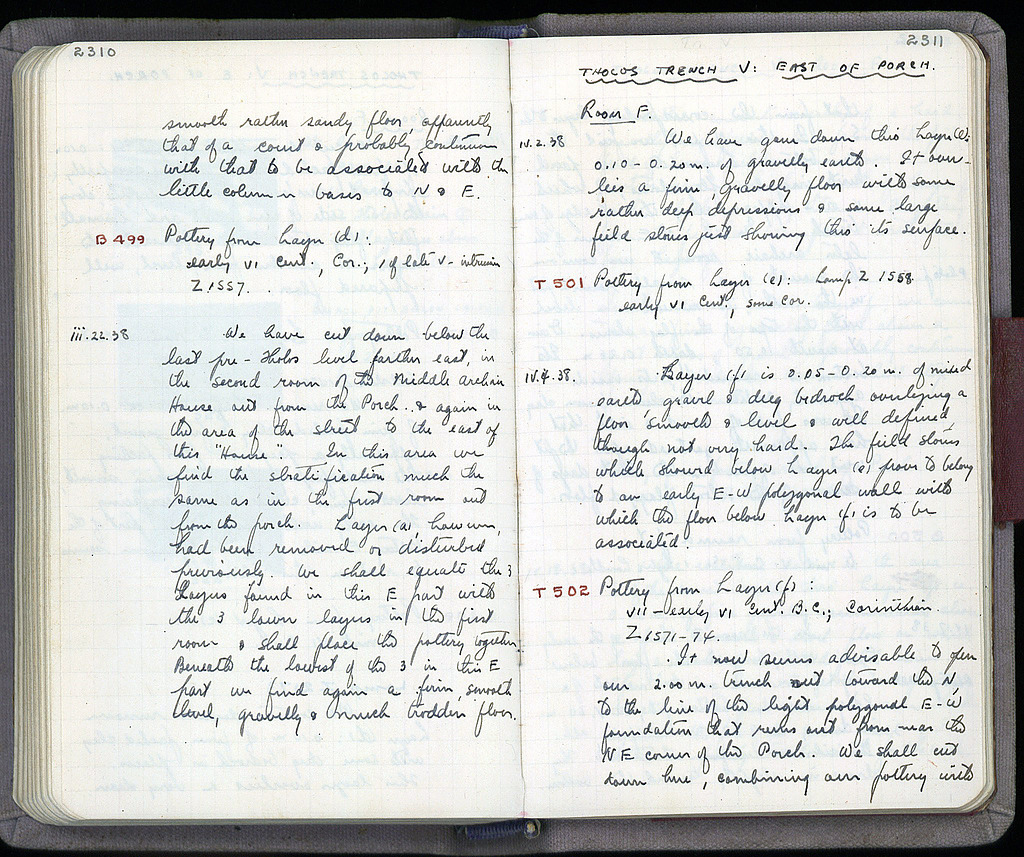 2310
smooth rather sandy floor, apparently
that of a court & probably continuous
with that to be associated with the
little column bases to N & E.
B 499 Pottery from Layer (d):
early VI Cent., Cor.; 1 of late V - intrusion
Z 1557.
iii.22.38 We have cut down below the
last pre-Tholos level farther east, in
the second room of the Middle archaic
House out from the Porch, & again in
the area of the street to the east of
this "House". In this area we
find the stratification much the
same as in the first room out
from the porch. Layer (a), however,
had been removed or disturbed
previously. We shall equate the 3
Layers found in this E part with
the 3 lower layers in the first
room & shall place the pottery together.
Beneath the lowest of the 3 in this E
part we find again a firm, smooth
level, gravelly & much trodden floor.
2311
THOLOS TRENCH V: EAST OF PORCH.
Room F.
iv.2.38 We have gone down this Layer (e):
0.10 - 0.20 m. of gravelly earth. It over-
lies a firm, gravelly floor with some
rather deep depressions & some large
field stones just showing thro' its surface.
T 501 Pottery from Layer (e): Lamp Z 1558
early VI Cent., some Cor.
iv.4.38. Layer (f) is 0.05 - 0.20 m. of mixed
earth, gravel & dug bedrock overlying a
floor, smooth & level & well defined,
though not very hard. The field stones
which showed below Layer (e) prove to belong
to an early E-W polygonal wall with
which the floor below Layer (f) is to be
associated.
T 502 Pottery from Layer (f):
VII - early VI Cent. B.C.; Corinthian.
Z 1571-74.
It now seems advisable to open
our 2.00 m. trench out toward the N,
to the line of the light polygonal E-W
foundation that runs out from near the
NE corner of the Porch. We shall cut
down here, combining our pottery with